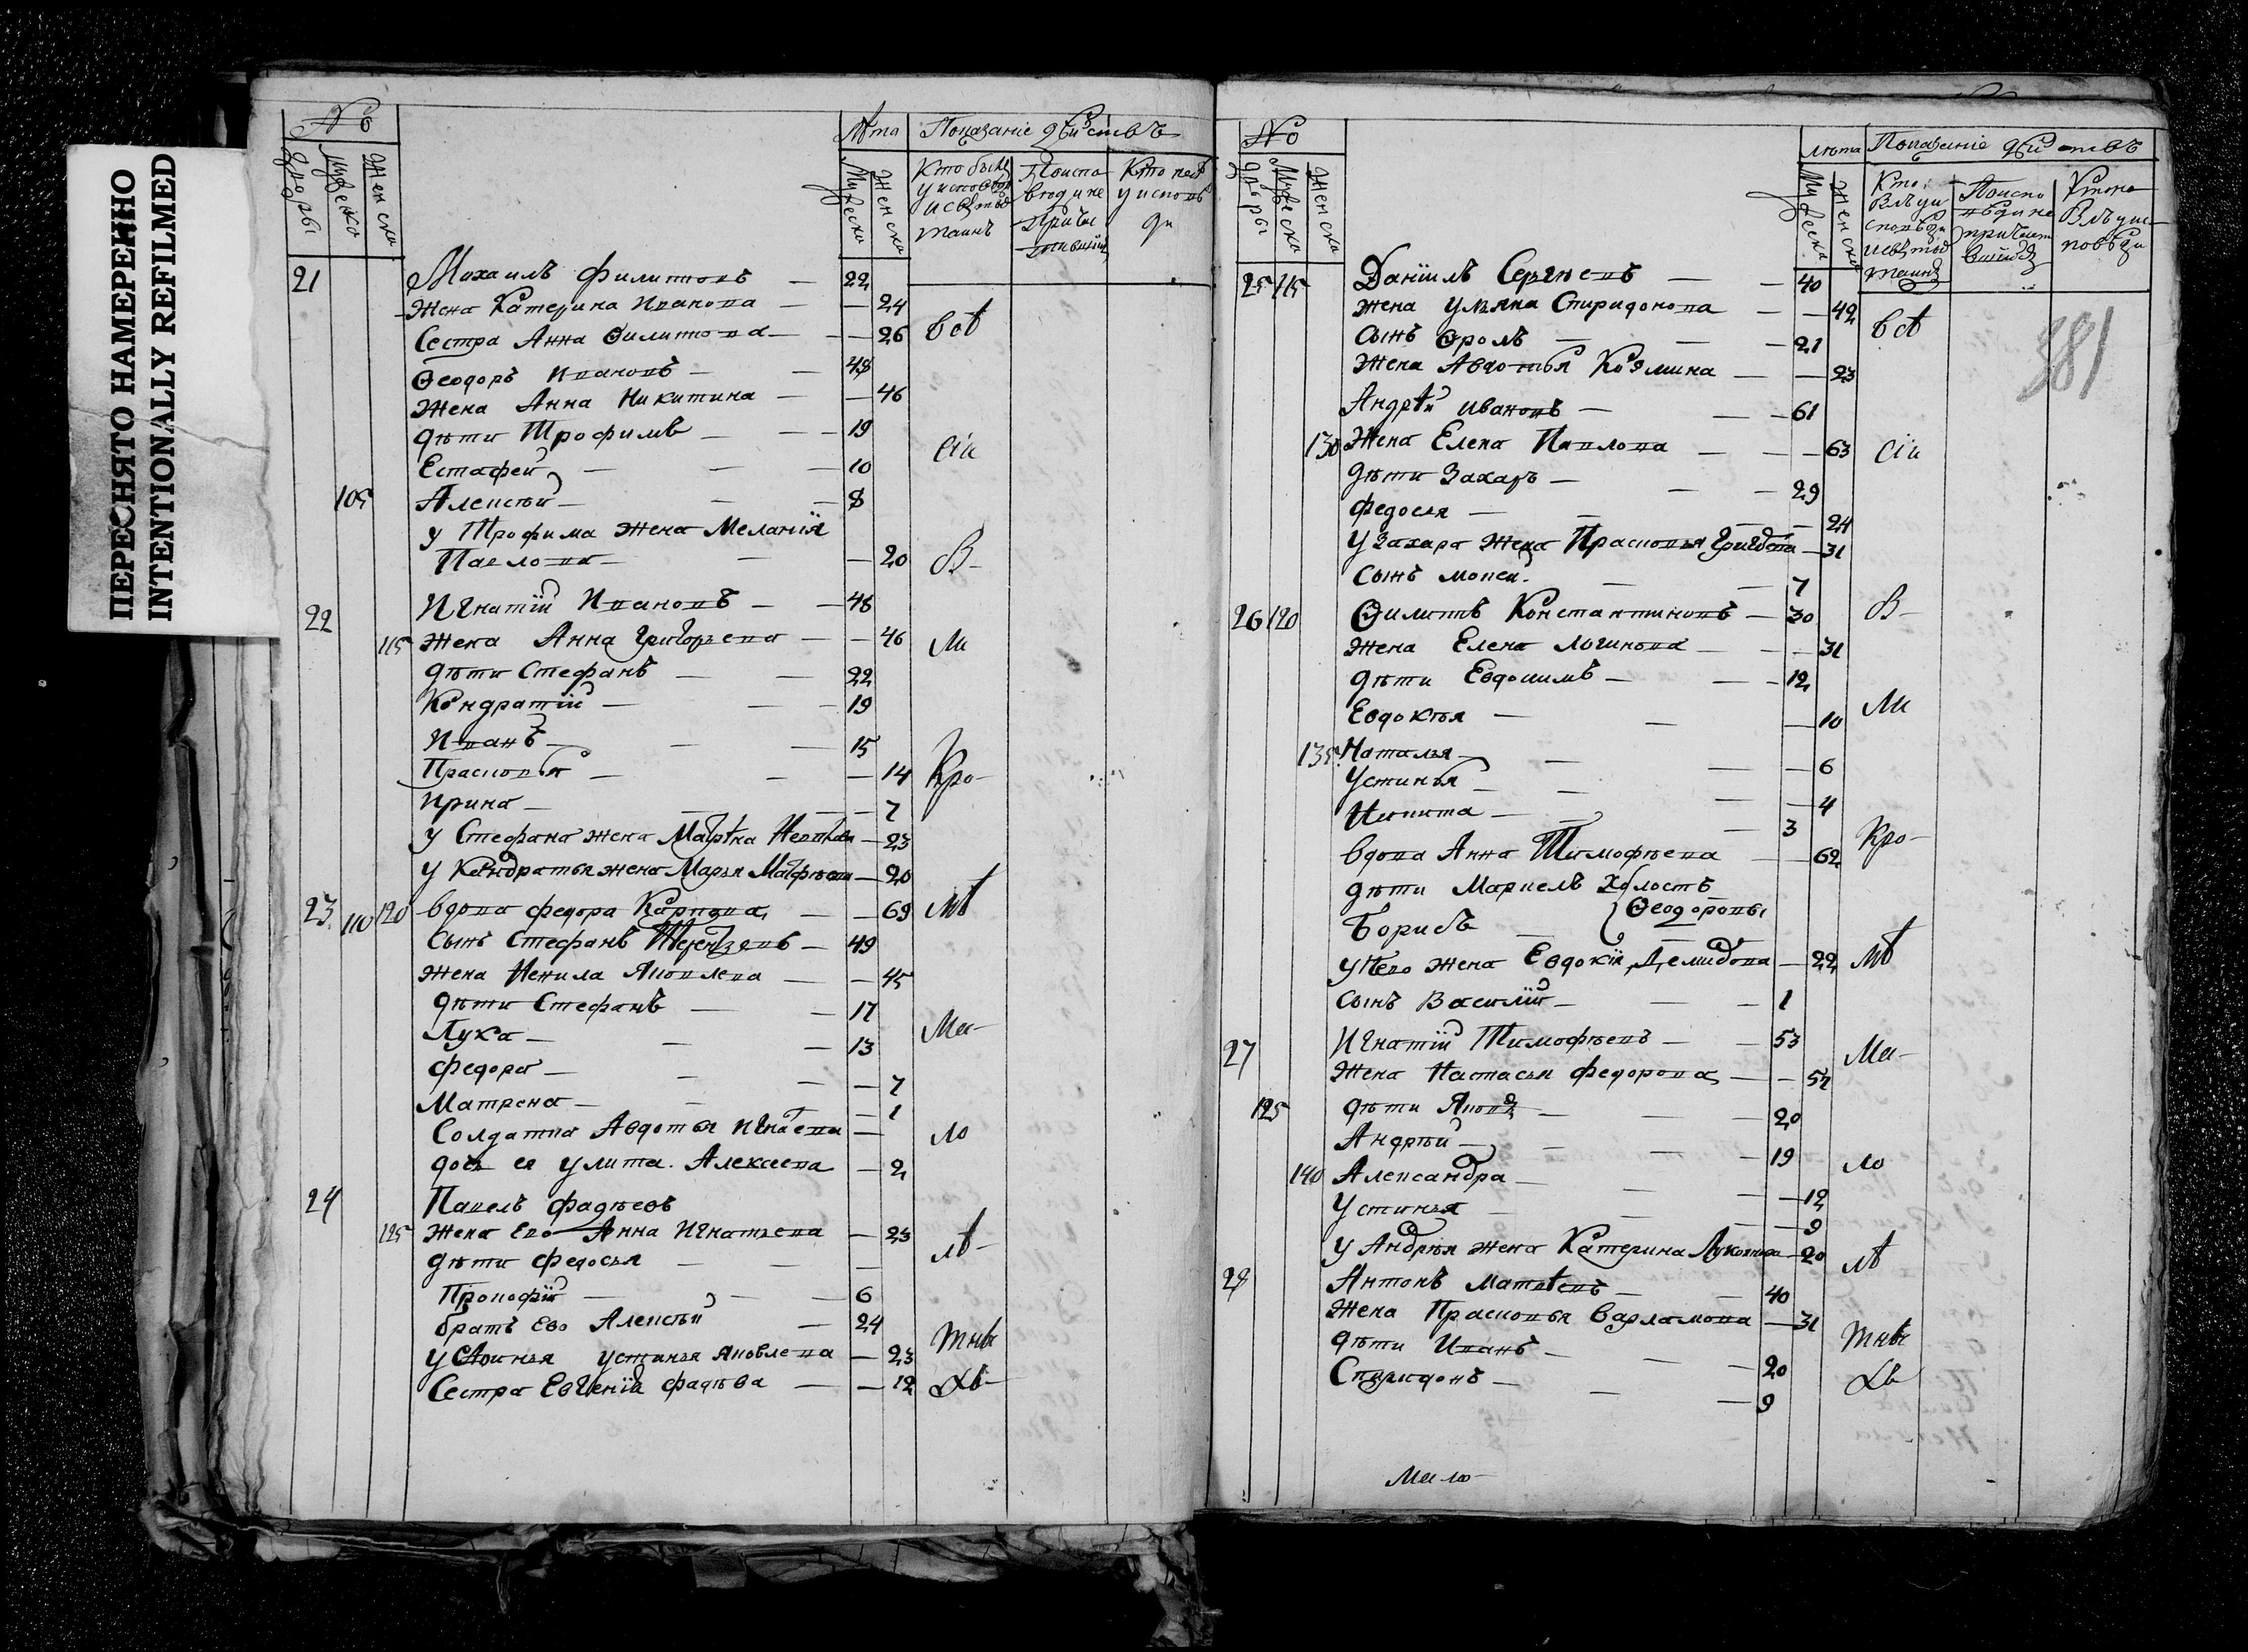 ПЕРЕСНЯТО НАМЕРЕННО
INTENTIONALLY REFILMED
№
Лѣта Показаніе дѣйствъ
дворы
Мужеска
Женска
Мужеска
Женска
Кто былъ
у исповѣди
и свѣтыхъ
таинъ
По испо
вѣди не
Причас
тившійся
Кто не былъ
у исповѣ
ди
21 Михаилъ Филиповъ — 22
Жена Катерина Иванова — 24
Сестра Анна Филипова — 26 всѣ
Ѳеодоръ Ивановъ — 48
Жена Анна Никитина — 46
дѣти Трофимъ — 19
Естафей — 10 сіи
105 Алексѣй — 8
у Трофима жена Меланія
Павлова — 20 В-
22 Игнатій Ивановъ — 48
115 жена Анна Григорьева — 46 Ли
дѣти Стефанъ — 22
Кондратій — 19
Иванъ — 15
Прасковья — 14 Кро-
Ирина — 7
у Стефана жена Матрѣна — 23
у Кондратья жена Марья Матфѣева — 20
23 110 120 Вдова Федора Карпова — 69 мѣ
Сынъ Стефанъ — 49
Жена Ненила Яковлева — 45
дѣти Стефанъ — 17
Лука — 13 Ма-
Федора — 7
Матрена — 1
Солдатка Авдотья Игнатева — ло
дочь ея Улита Алексеева — 2
24 Павелъ Фадѣевъ
125 жена Ево Анна Игнатьева — 23 лѣ-
дѣти Федосья —
Прокофій — 6
братъ Ево Алексѣй — 24 тны
Устинья Яковлева — 23
Сестра Евгенія Фадѣва — 12 хъ-
№
лѣта Показаніе дѣйствъ
дворы
Мужеска
Женска
Мужеска
Женска
381
25 115 Даніилъ Сергѣевъ — 40
жена Ульяна Спиридонова — 42 всѣ
Сынъ Ѳролъ — 21
Жена Авдотья Козмина — 23
Андрѣй Ивановъ — 61
130 Жена Елена Павлова — 63 сіи
дѣти Захаръ — 29
Федосья — 24
У Захара жена Прасковья — 31
Сынъ Мокей — 7
26 120 Филиппъ Константиновъ — 30 В-
Жена Елена Логинова — 31
дѣти Евдокимъ — 12
Евдокья — 10 Ли
135 Наталья — 6
Устинья — 4
Никита — 3
Вдова Анна Тимофѣева — 62 Кро-
дѣти Маркелъ Холостъ
Борисъ Ѳеодоровы
у нево жена Евдокія Демидова — 22 мѣ
Сынъ Василій — 1
27 Игнатій Тимофѣевъ — 53 Ма-
Жена Настасья Федорова — 52
125 дѣти Яковъ — 20
Андрѣй — 19
140 Александра — 12 ло
Устинья — 9
У Андрѣя жена Катерина — 20 лѣ
28 Антонъ Матвѣевъ — 40
Жена Прасковья Варламова — 31
дѣти Иванъ — 20 тны
Спиридонъ — 9 хъ
Мало-